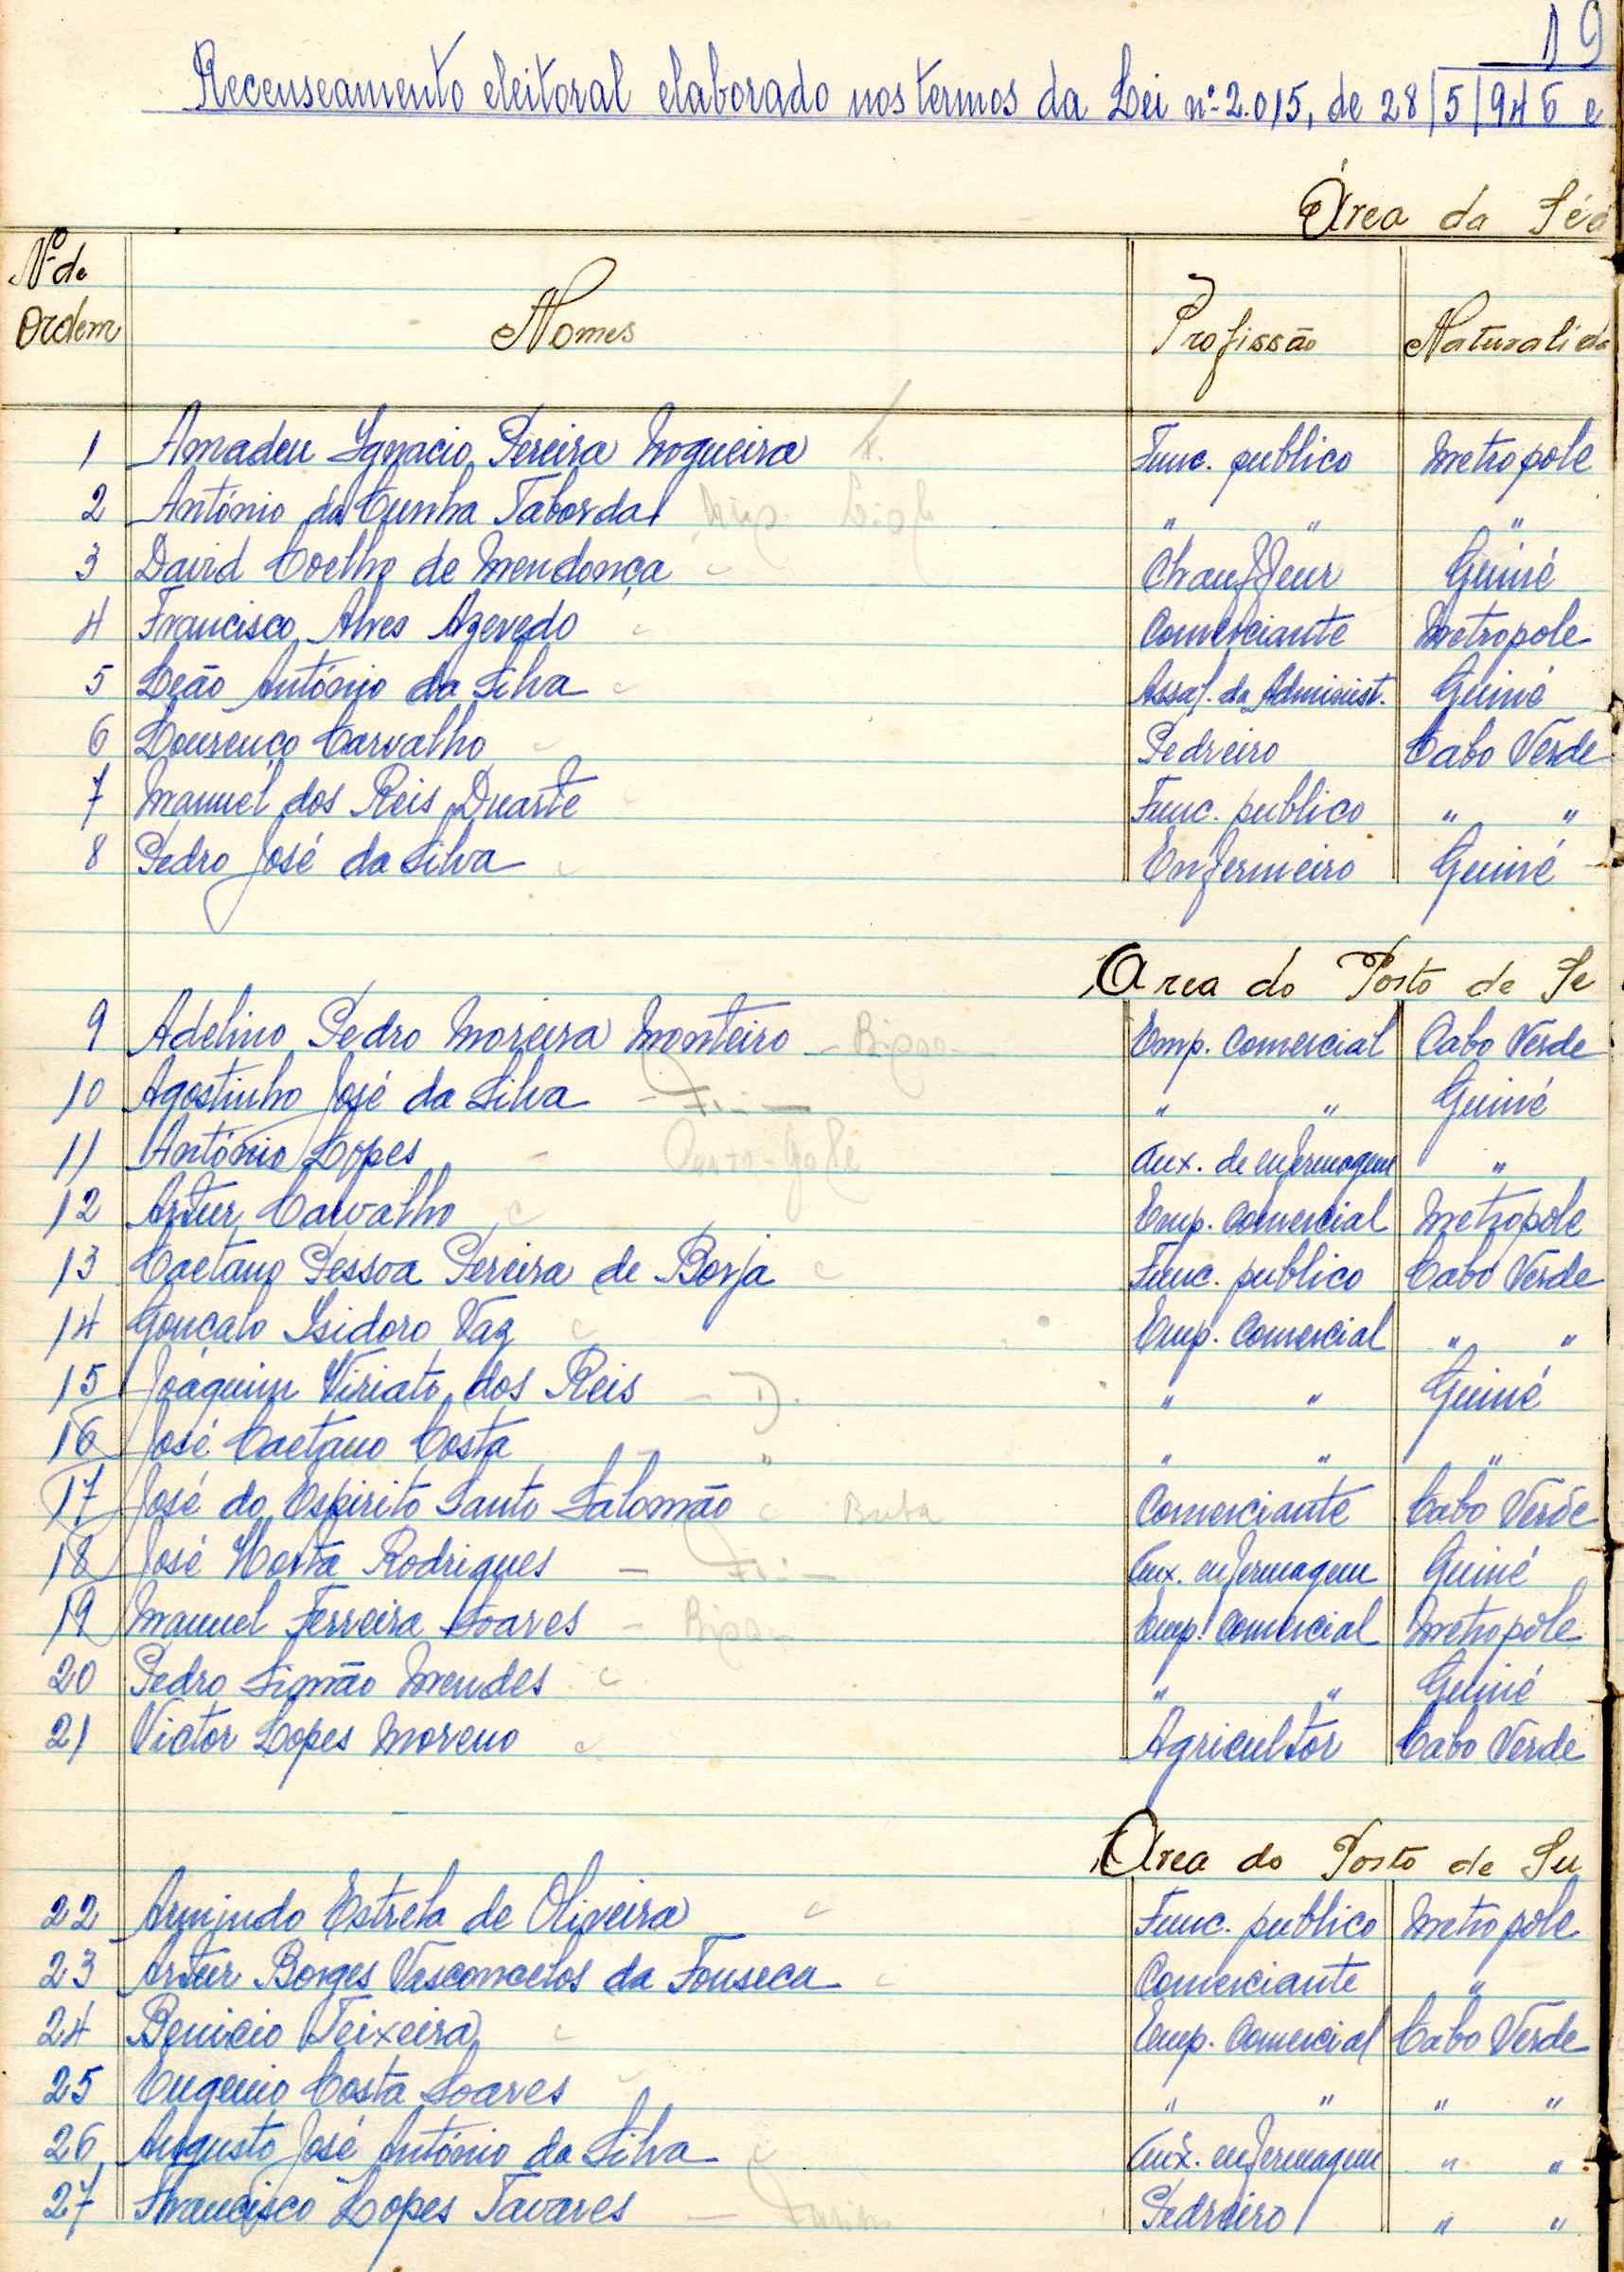 19
Recenseamento eleitoral elaborado nos termos da Lei nº 2.015, de 28/5/946 e
Área da Séd
Nº de Ordem Nomes Profissão Naturalida
1 Amadeu Ignacio Pereira Nogueira Func. publico Metropole
2 António da Cunha Taborda " " "
3 David Coelho de Mendonça Chauffeur Guiné
4 Francisco Alves Azevedo Comerciante Metropole
5 Leão António da Silva Assal. da Administ. Guiné
6 Lourenço Carvalho Pedreiro Cabo Verde
7 Manuel dos Reis Duarte Func. publico " "
8 Pedro José da Silva Enfermeiro Guiné
Area do Posto de Se
9 Adelino Pedro Moreira Monteiro Emp. Comercial Cabo Verde
10 Agostinho José da Silva " " Guiné
11 António Lopes Aux. de enfermagem "
12 Artur Carvalho Emp. Comercial Metropole
13 Caetano Pessoa Pereira de Borja Func. publico Cabo Verde
14 Gonçalo Isidoro Vaz Emp. Comercial " "
15 Joaquim Viriato dos Reis - D. " " Guiné
16 José Caetano Costa - " " " "
17 José do Espirito Santo Salomão Buba Comerciante Cabo Verde
18 José Horta Rodrigues - Aux. enfermagem Guiné
19 Manuel Ferreira Soares - Emp. Comercial Metropole
20 Pedro Simão Mendes " " Guiné
21 Victor Lopes Moreno Agricultor Cabo Verde
Area do Posto de Su
22 Armindo Estrela de Oliveira Func. publico Metropole
23 Artur Borges Vasconcelos da Fonseca Comerciante "
24 Benicio Teixeira Emp. Comercial Cabo Verde
25 Eugenio Costa Soares " " " "
26 Augusto José António da Silva Aux. enfermagem " "
27 Francisco Lopes Tavares - Pedreiro " "